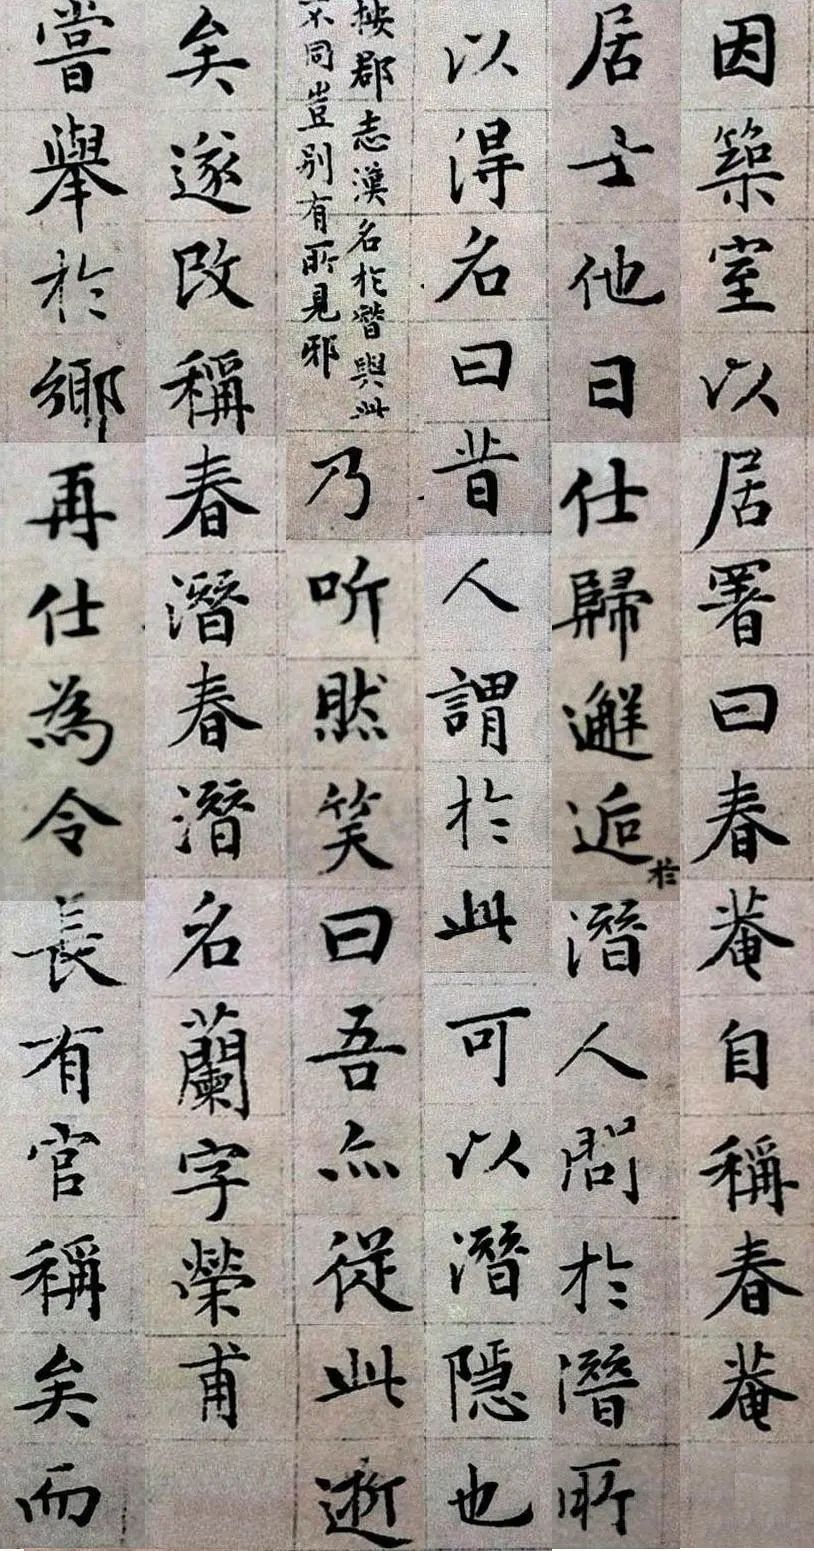 因築室以居署曰春菴自稱春菴
居士他日仕歸邂逅於潛人問於潛所
以得名曰昔人謂於此可以潛隱也
按郡志漢名於朁與此
不同豈别有所見邪
乃听然笑曰吾亦從此逝
矣遂改稱春潛春潛名蘭字榮甫
嘗舉於鄉再仕為令長有官稱矣而